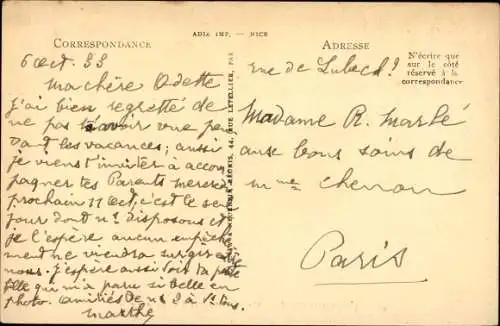 ADIA IMP. - NICE
CORRESPONDANCE
6 Oct. 33
Ma chère Odette
J'ai bien regretté de
ne pas t'avoir vue pen
dant les vacances; aussi
je viens t'inviter à accom
pagner tes Parents mercredi
prochain 11 Oct, c'est le seul
jour dont ns disposons et
je l'espère aucun empêche
ment ne viendra surgir
nous. J'espère aussi voir ta
elle qui m'a paru si belle en
photo. Amitiés de ns 2 à vs tous.
Marthe
44, RUE LETELLIER, PARIS
ADRESSE
N'écrire que
sur le côté
réservé à la
correspondance
rue de Lubeck 9
Madame R. Marbé
aux bons soins de
Mme Chenon
Paris